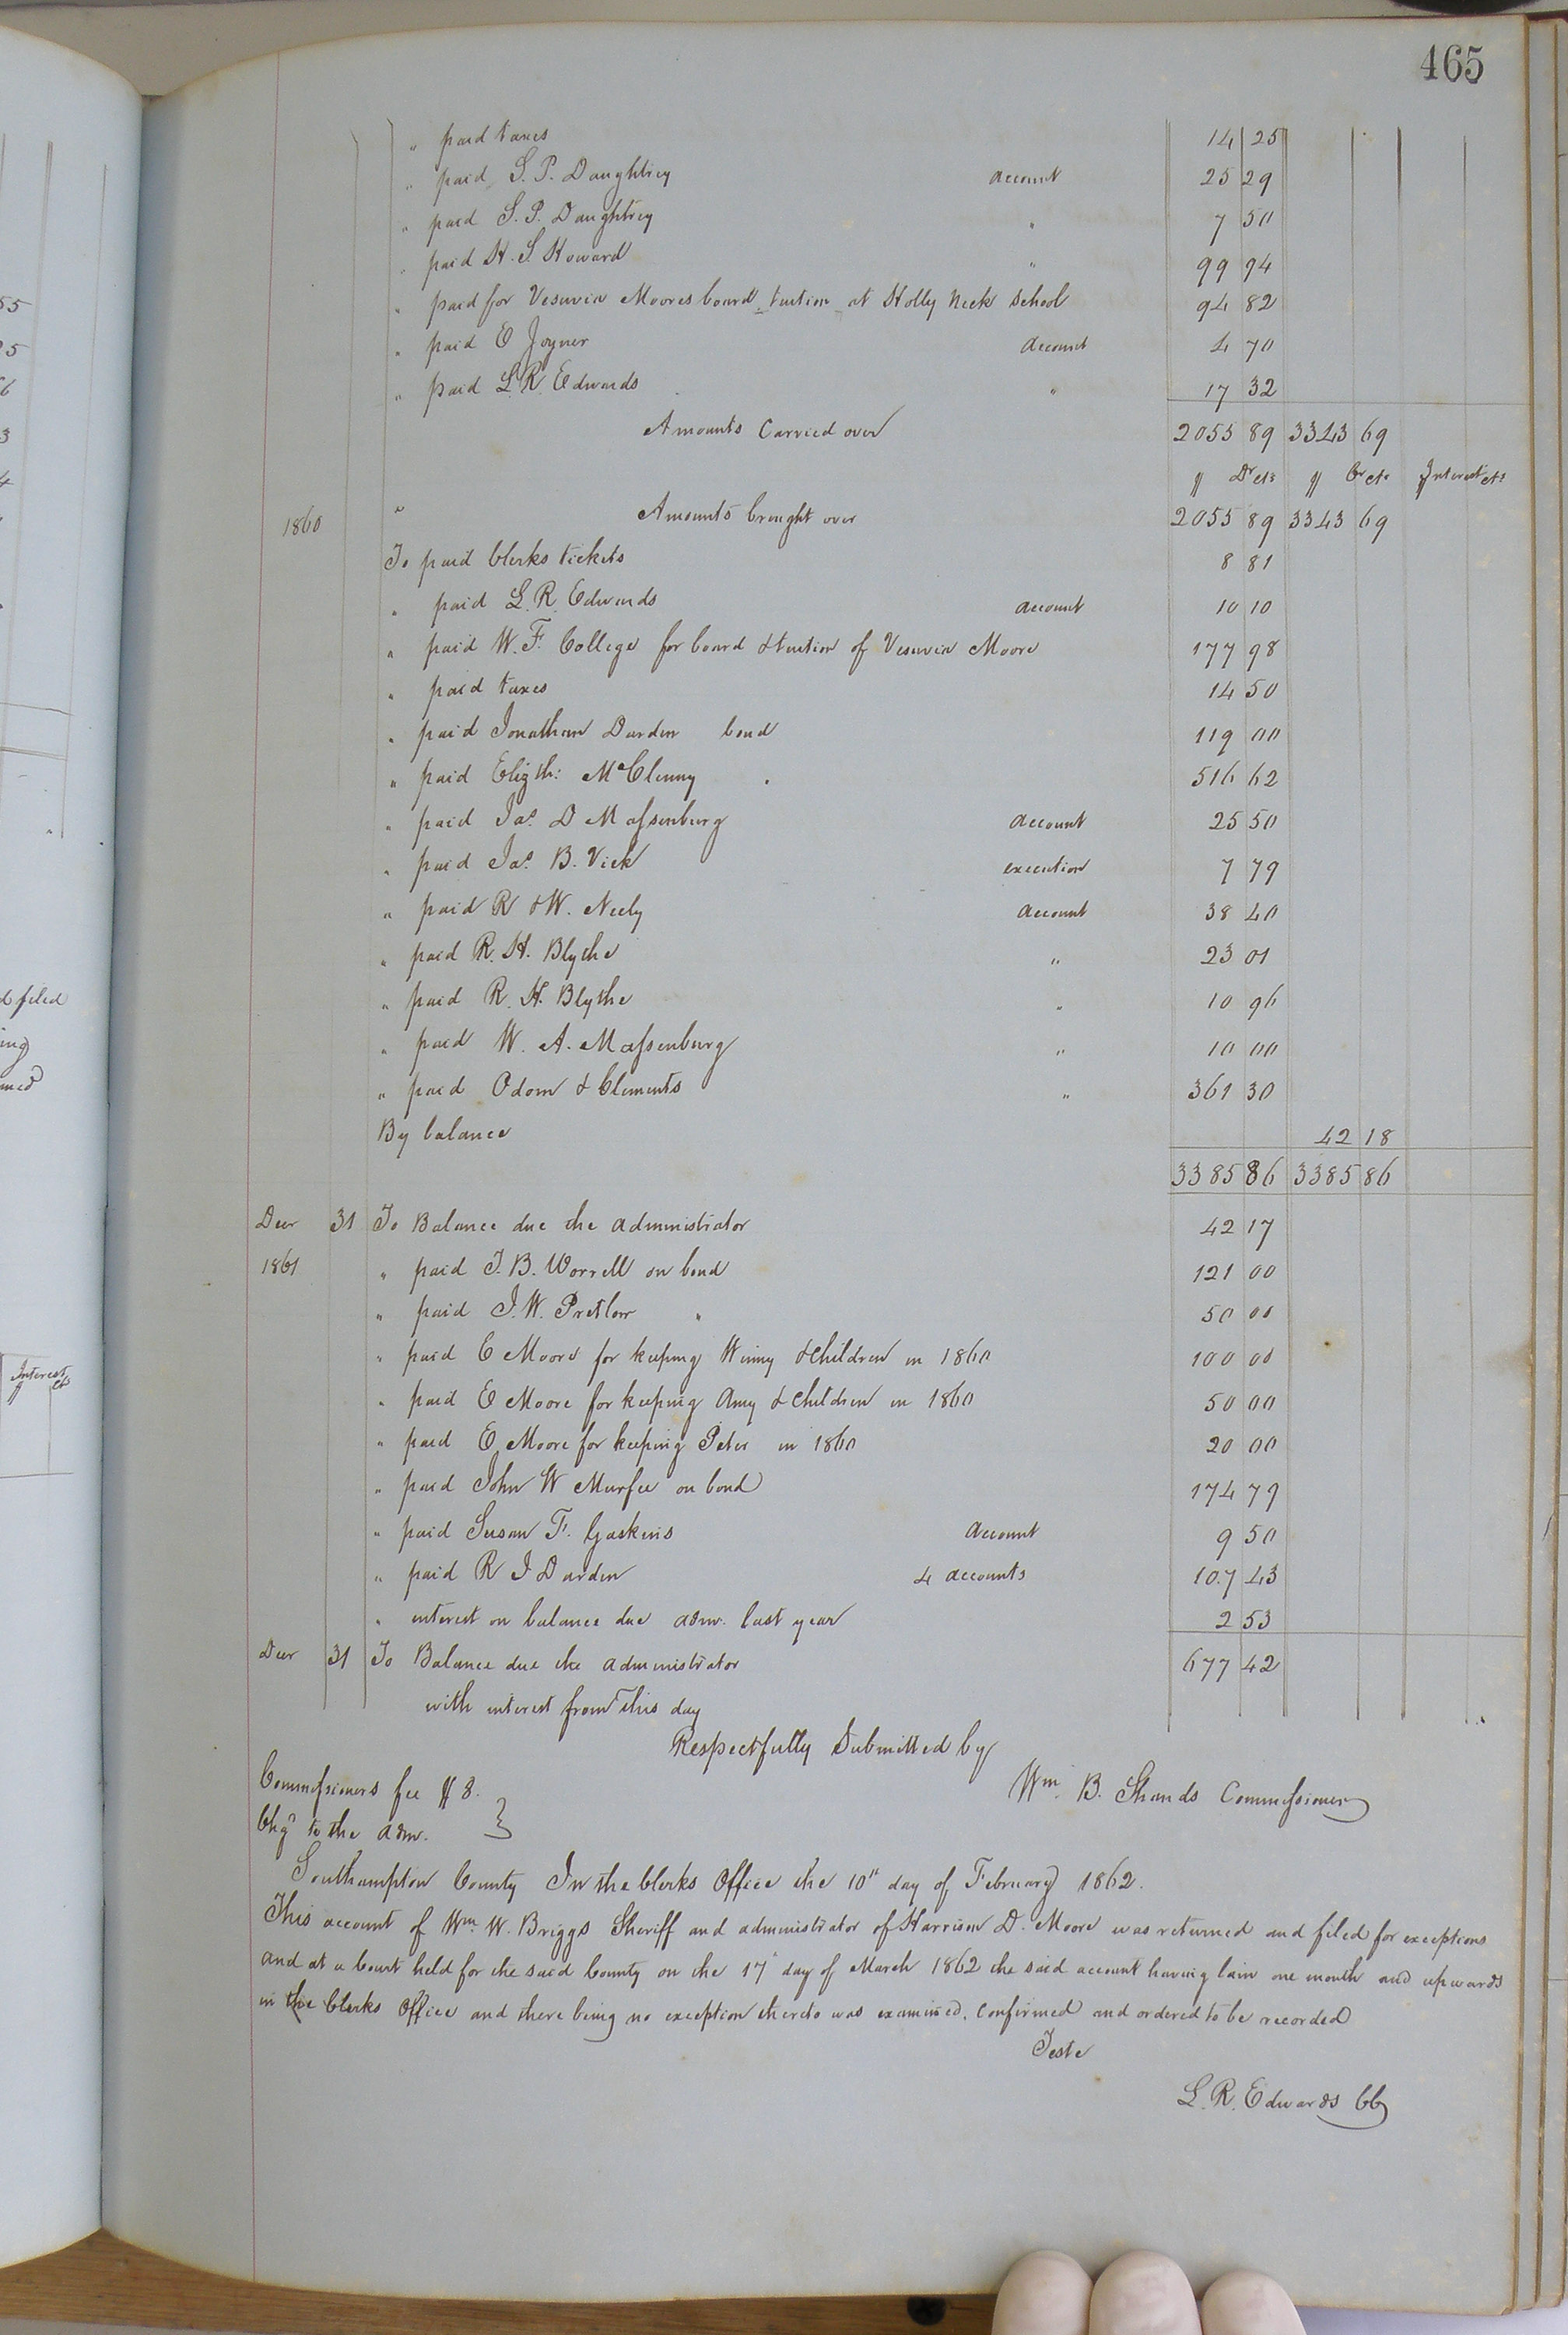 465
" paid taxes 14 25
" paid S. P. Daughtrey account 25 29
" paid S. P. Daughtrey " 7 50
" paid H. S. Howard " 99 94
" paid for Vesuvia Moores board tuition at Holly Neck School 94 82
" paid E Joyner account 4 70
" paid L. R. Edwards " 17 32
Amounts Carried over 2055 89 3343 69
$ Dr cts $ Cr cts Interest cts
1860 " Amounts brought over 2055 89 3343 69
To paid Clerks tickets 8 81
" paid L. R. Edwards account 10 10
" paid W. F. College for board & tuition of Vesuvia Moore 177 98
" paid taxes 14 50
" paid Jonathan Darden bond 119 00
" paid Elizth: McClenny " 516 62
" paid Jas. D Massenburg account 25 50
" paid Jas. B. Vick execution 7 79
" paid R & W. Neely account 38 40
" paid R. H. Blythe " 23 01
" paid R. H. Blythe " 10 96
" paid W. A. Massenburg " 10 00
" paid Odom & Clements " 361 30
By balance 42 18
3385 86 3385 86
Decr 31 To Balance due the administrator 42 17
1861 " paid J. B. Worrell on bond 121 00
" paid J. W. Pretlow " 50 00
" paid E Moore for keeping Winny & Children in 1860 100 00
" paid E Moore for keeping Amy & Children in 1860 50 00
" paid E. Moore for keeping Peter in 1860 20 00
" paid John W Murfee on bond 174 79
" paid Susan F. Gaskins Account 9 50
" paid R J Darden 4 accounts 107 43
" interest on balance due adm. last year 2 53
Decr 31 To Balance due the administrator 677 42
with interest from this day
Respectfully Submitted by
Commissioners fee $8.
Wm. B. Shands Commissioner
Chgd to the adm.
Southampton County In the Clerks Office the 10th day of February 1862.
This account of Wm. W. Briggs Sheriff and administrator of Harrison D. Moore was returned and filed for exceptions
and at a Court held for the said County on the 17th day of March 1862 the said account having lain one month and upwards
in the Clerks Office and there being no exception thereto was examined, confirmed and ordered to be recorded
Teste
L. R. Edwards CC
d filed
Interest
$ cts